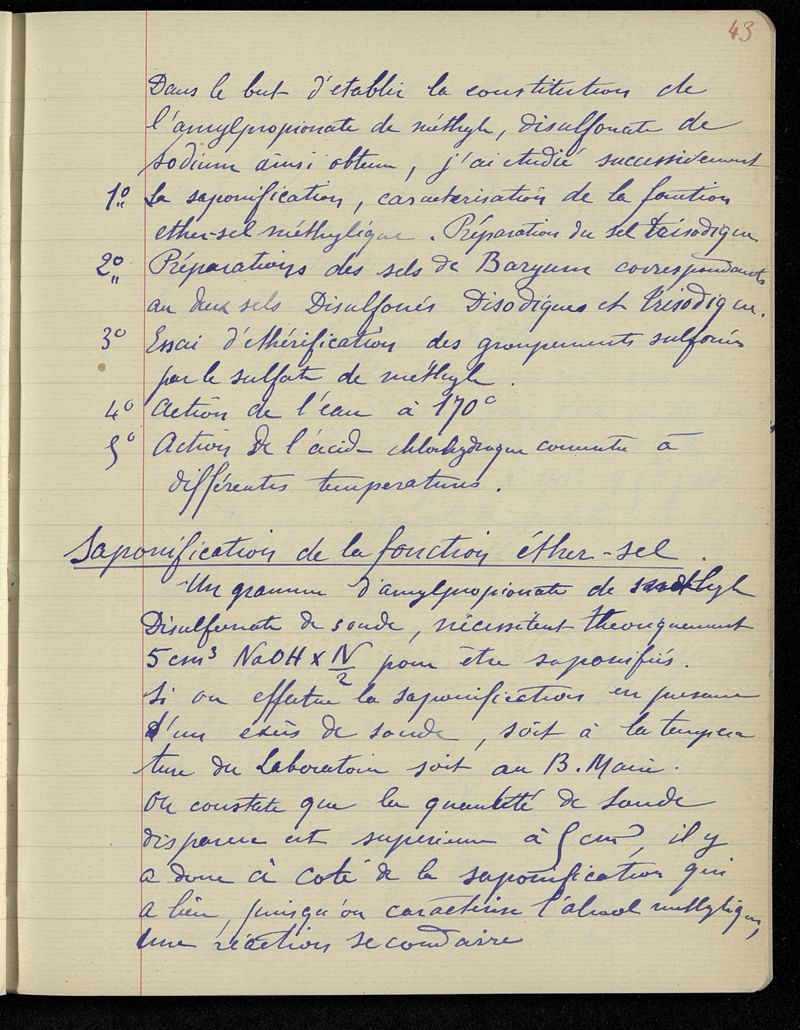 43
Dans le but d'établir la constitution de
l'amylpropionate de méthyle, disulfonate de
sodium ainsi obtenu, j'ai etudié successivement
1º la saponification, caracterisation de la fonction
ether-sel méthylique. Préparation du sel trisodique
2º Préparations des sels de Baryum correspondants
au deux sels Disulfonés Disodiques et trisodique.
3º Essai d'éthérification des groupements sulfonés
par le sulfate de méthyle.
4º Action de l'eau à 170º
5º Action de l'acide chlorhydrique concentré à
différentes temperatures.
Saponification de la fonction éther-sel.
Un gramme d'amylpropionate de methyle
Disulfonate de soude, nécessitent theoriquement
5 cm³ NaOH x N/2 pour être saponifiés.
Si on effectue la saponification en presence
d'un excès de soude, soit à la tempera
ture du Laboratoire soit au B. Marie.
On constate que la quantité de soude
disparue est superieure à 5 cm³, il y
a donc à coté de la saponification qui
a lieu, puisqu'on caracterise l'alcool methylique,
une réaction secondaire